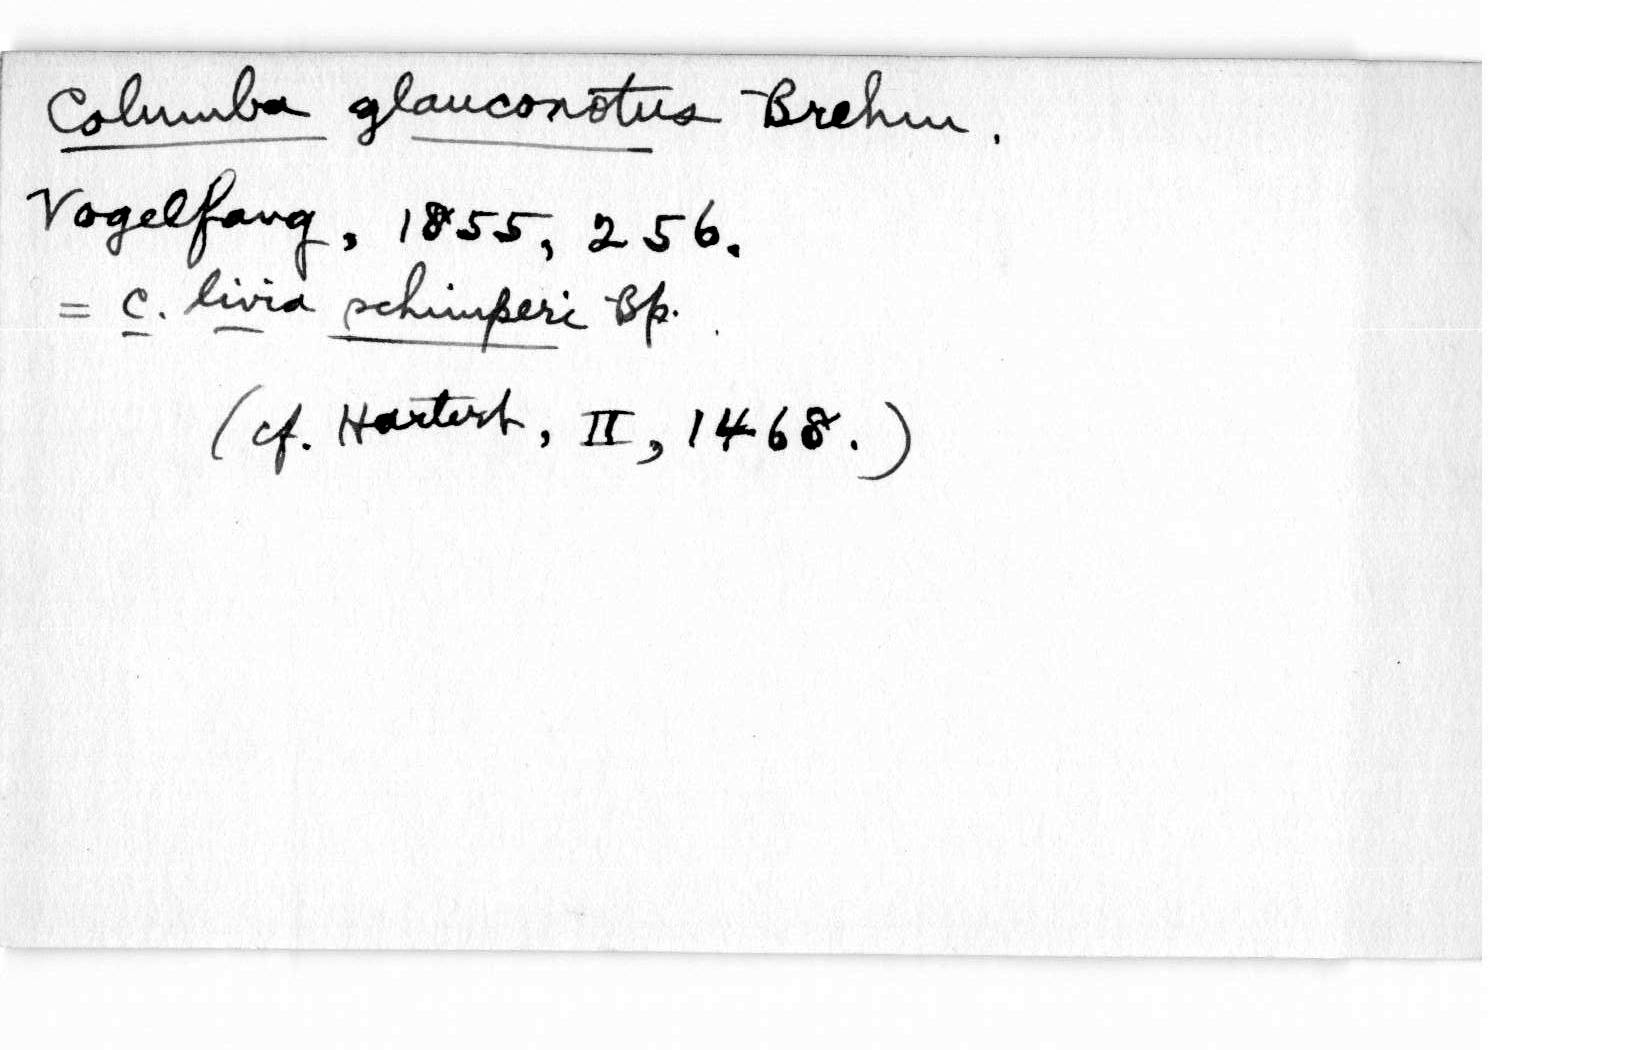 Columba glauconotus Brehm.
Vogelfang, 1855, 256.
= C. livia schimperi Bp.
(cf. Hartert, II, 1468.)